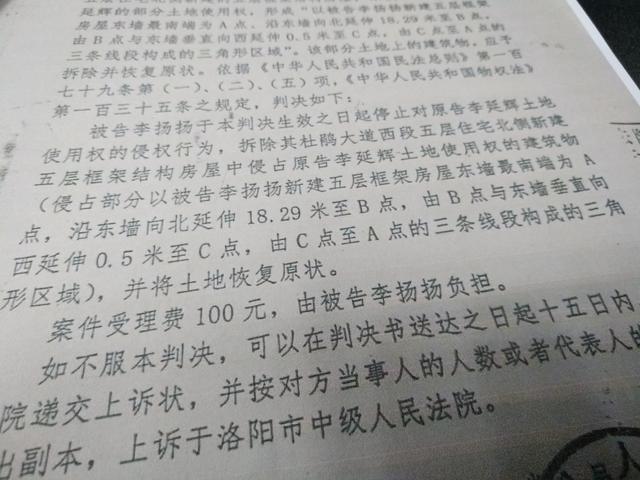 延辉的部分土地使用权，形成“以被告李扬扬新建五层框架
房屋东墙最南端为A点，沿东墙向北延伸18.29米至B点，
由B点与东墙垂直向西延伸0.5米至C点，由C点至A点的
三条线段构成的三角形区域”。该部分土地上的建筑物，应予
拆除并恢复原状。依据《中华人民共和国民法总则》第一百
七十九条第（一）、（二）、（五）项，《中华人民共和国物权法》
第一百三十五条之规定，判决如下：
被告李扬扬于本判决生效之日起停止对原告李延辉土地
使用权的侵权行为，拆除其杜鹃大道西段五层住宅北侧新建
五层框架结构房屋中侵占原告李延辉土地使用权的建筑物
（侵占部分以被告李扬扬新建五层框架房屋东墙最南端为A
点，沿东墙向北延伸18.29米至B点，由B点与东墙垂直向
西延伸0.5米至C点，由C点至A点的三条线段构成的三角
形区域），并将土地恢复原状。
案件受理费100元，由被告李扬扬负担。
如不服本判决，可以在判决书送达之日起十五日内
院递交上诉状，并按对方当事人的人数或者代表人的
出副本，上诉于洛阳市中级人民法院。
县人